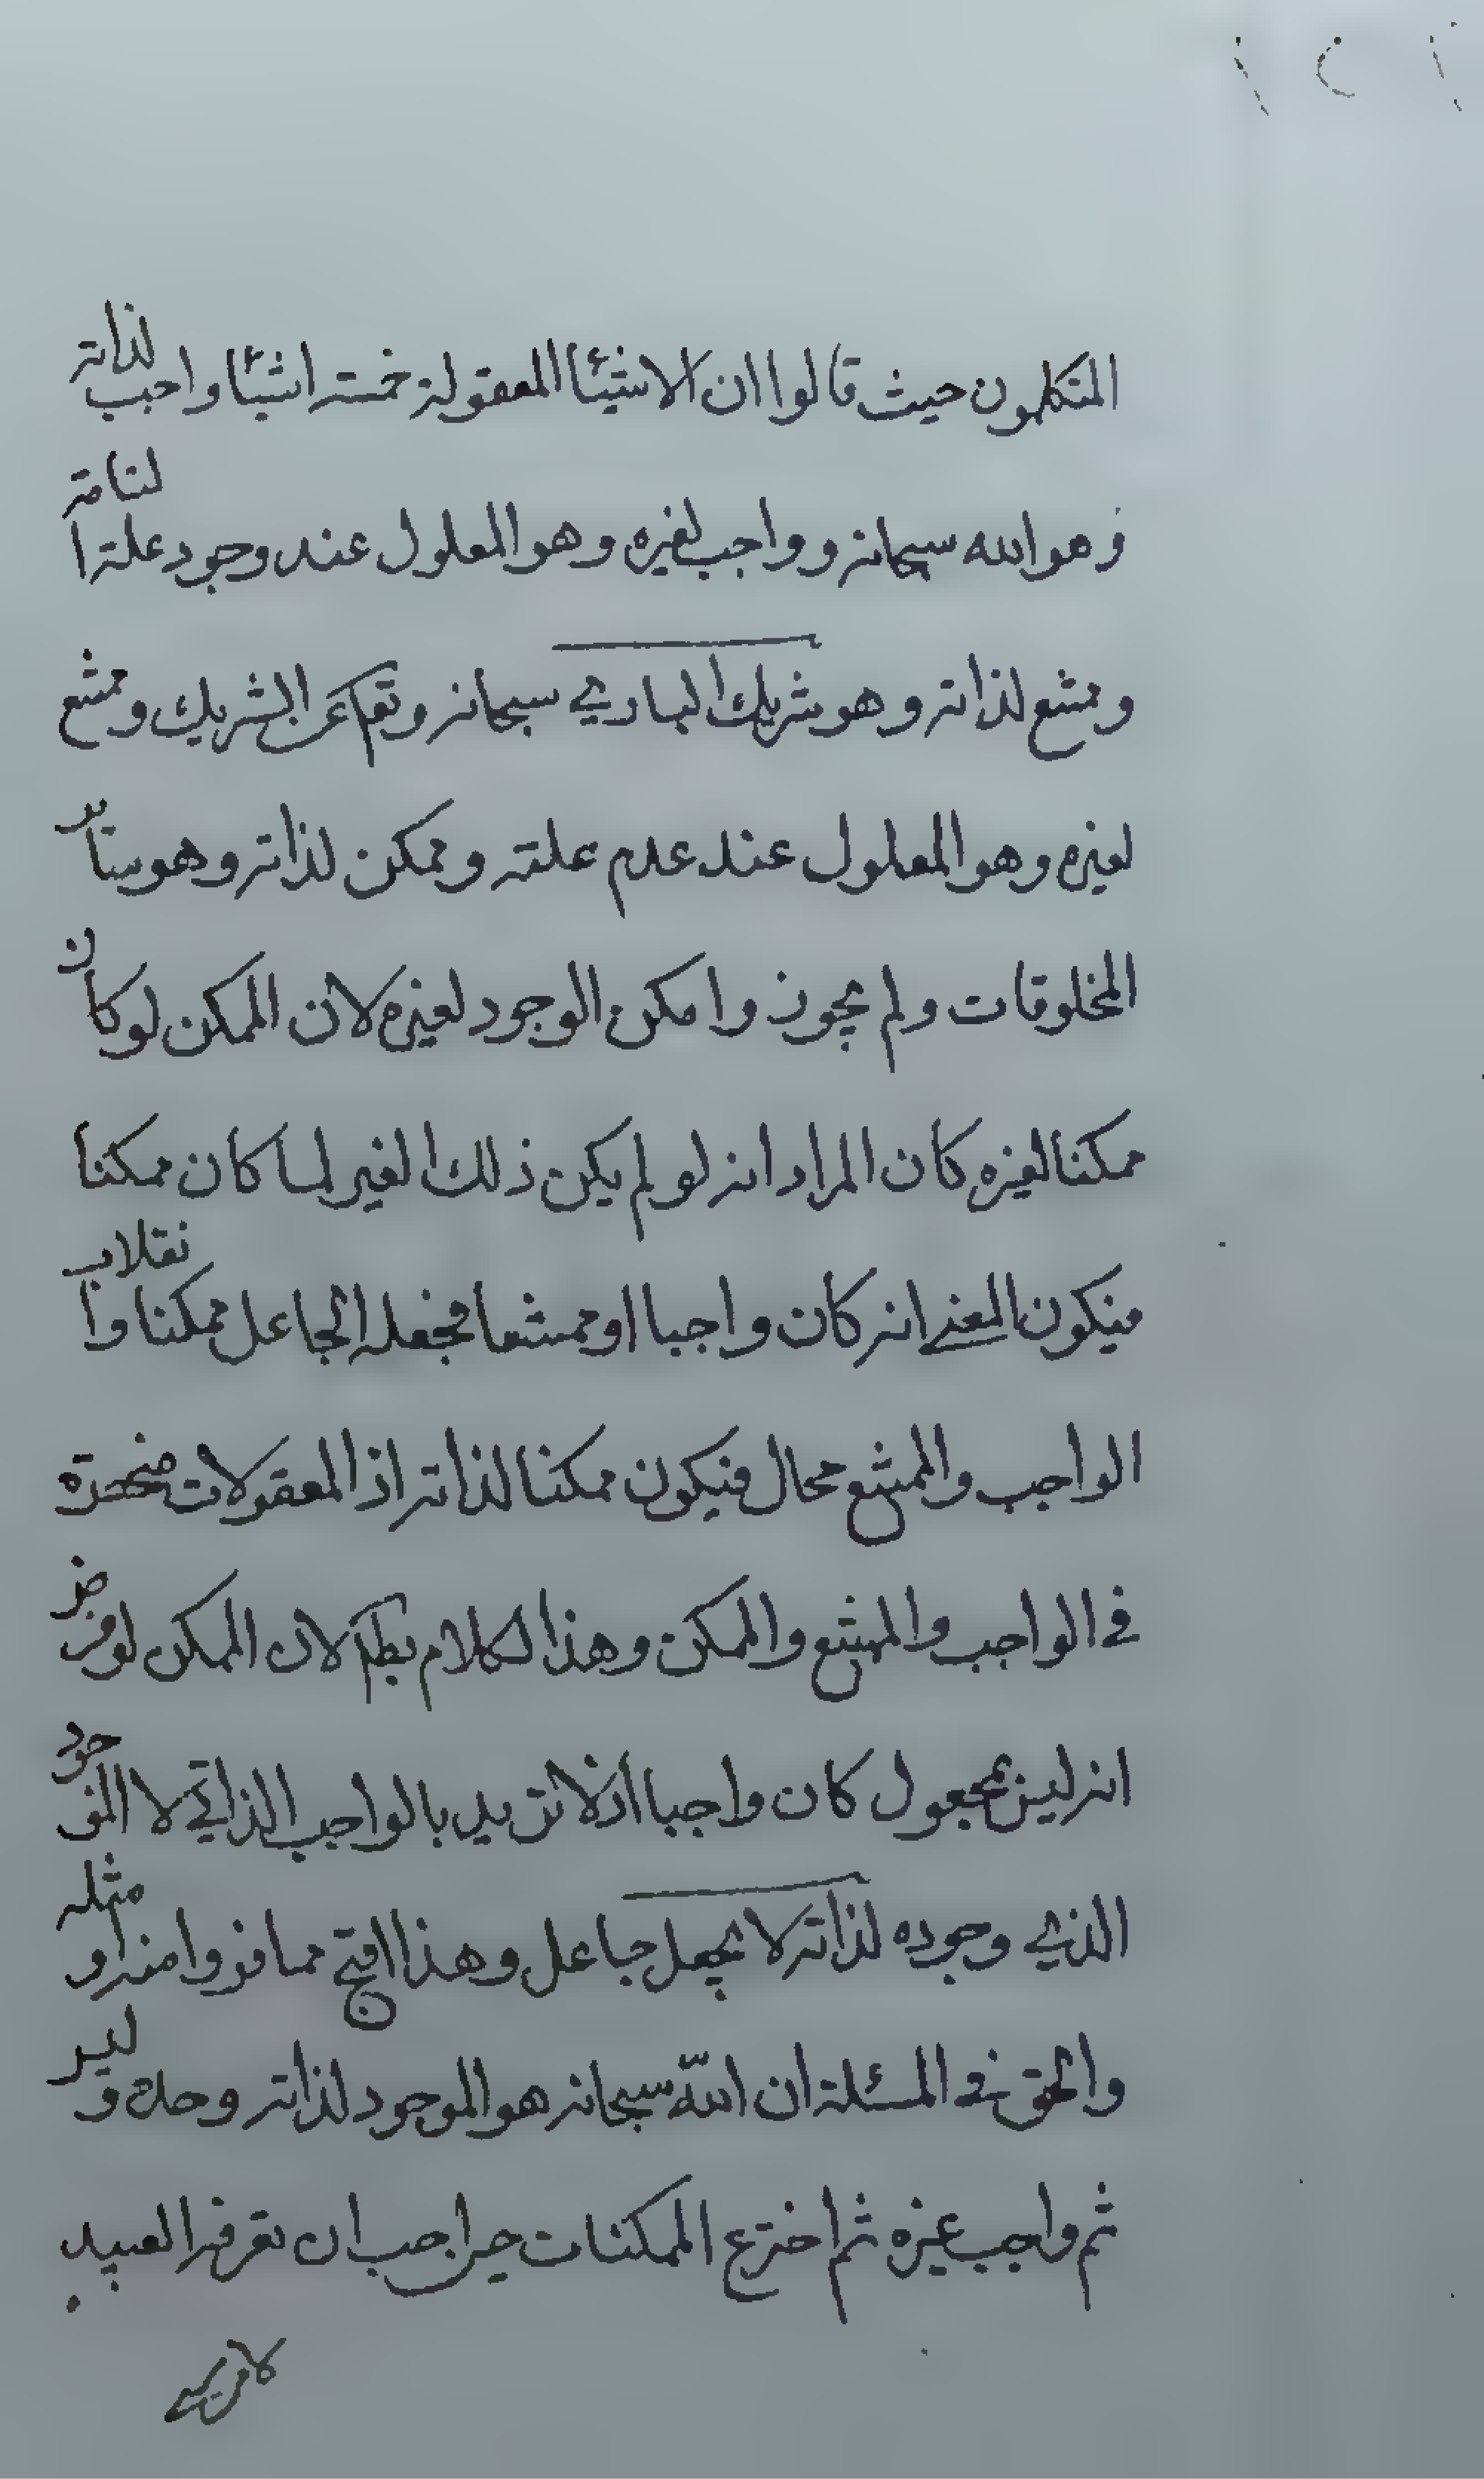 المتكلمون حيث قالوا ان الاشيئا المعقولة خمسة اشيئا واجب لذاته
وهو الله سبحانه وواجب لغيره وهو المعلول عند وجود علته التامة
وممتنع لذاته وهو شريك الباري سبحانه وتعم عن الشريك وممتنع
لغيره وهو المعلول عند عدم علته وممكن لذاته وهو سائر
المخلوقات ولم يجوزوا ممكن الوجود لغيره لان الممكن لو كان
ممكنا لغيره كان المراد انه لو لم يكن ذلك الغير لما كان ممكنا
فيكون المعنى انه كان واجبا او ممتنعا فجعله الجاعل ممكنا وانقلاب
الواجب والممتنع محال فيكون ممكنا لذاته اذ المعقولات منحصرة
في الواجب والممتنع والممكن وهذا الكلام بطم لان الممكن لو فرض
انه ليس بمجعول كان واجبا اذ لا نريد بالواجب الذاتي الا الموجود
الذي وجوده لذاته لا بجعل جاعل وهذا اقبح مما فروا منه او مثله
والحق في المسئلة ان الله سبحانه هو الموجود لذاته وحده وليس
ثم واجب غيره ثم اخترع الممكنات حين احب ان يعرفه العبيد